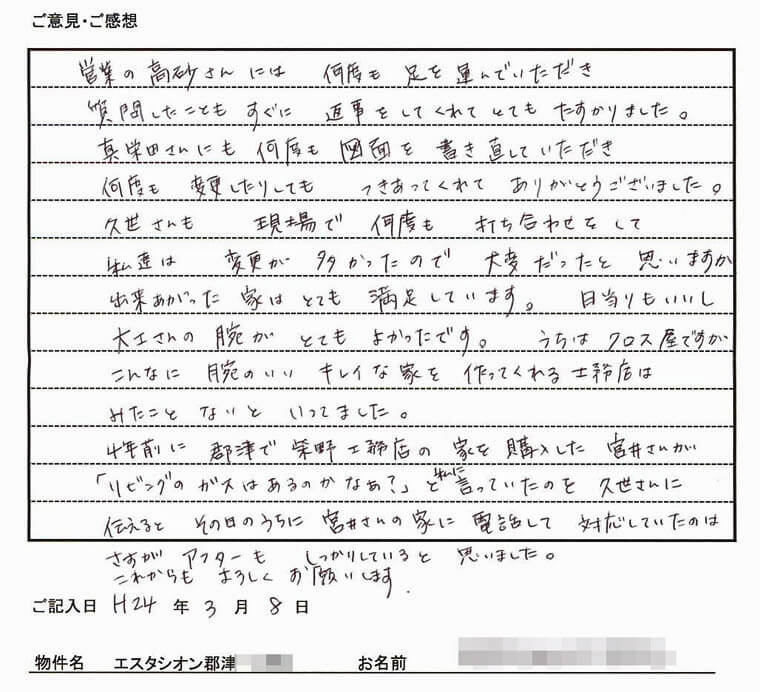 ご意見・ご感想
営業の高砂さんには 何度も 足を運んでいただき
質問したことも すぐに 返事をしてくれて とても たすかりました。
真栄田さんにも 何度も 図面を 書き直していただき
何度も 変更したりしても つきあってくれて ありがとうございました。
久世さんも 現場で 何度も 打ち合わせをして
私達は 変更が 多かったので 大変だったと 思いますが
出来あがった 家は とても 満足しています。 日当りもいいし
大工さんの 腕が とても よかったです。 うちは クロス屋ですが
こんなに 腕のいい キレイな家を 作ってくれる 工務店は
みたこと ないと いってました。
4年前に 郡津で 栄野工務店の 家を 購入した 宮井さんが
「リビングの ガスはあるのかなあ?」と 私に 言っていたのを 久世さんに
伝えると その日のうちに 宮井さんの 家に 電話して 対応していたのは
さすが アフターも しっかりしていると 思いました。
これからも よろしく お願いします.
ご記入日 H24 年 3 月 8 日
物件名 エスタシオン郡津 お名前